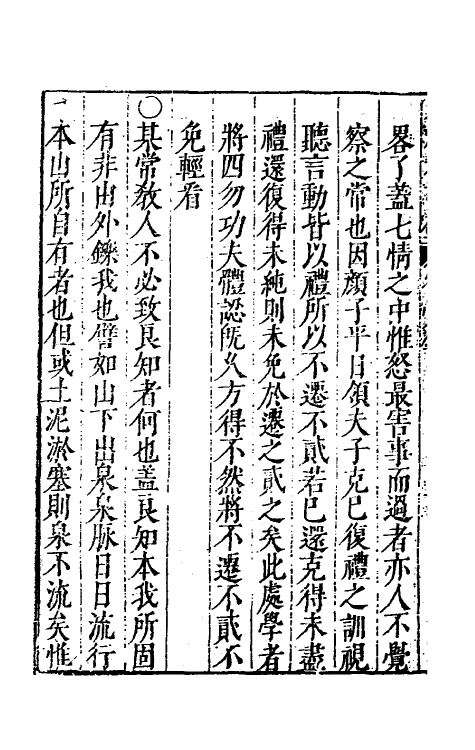 畧了葢七情之中惟怒最害事而過者亦人不覺
察之常也因顔子平日領夫子克已復禮之訓視
聽言動皆以禮所以不遷不貳若已還克得未盡
禮還復得未純則未免於遷之貳之矣此處學者
將四勿功夫體認旣久方得不然將不遷不貳不
免輕看
○某常教人不必致良知者何也葢良知本我所固
有非由外鑠我也譬如山下出泉泉脉日日流行
本山所自有者也但或土泥淤塞則泉不流矣惟